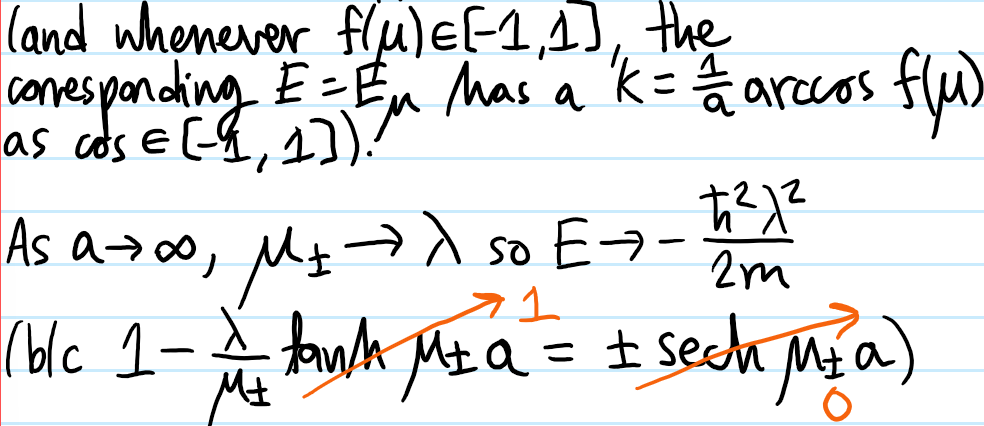 (and whenever f(μ)∈[-1,1], the
corresponding E=E_μ has a k = 1/a arccos f(μ)
as cos ∈ [-1, 1]).
As a→∞, μ_± → λ so E → - ħ²λ²/2m
(b/c 1 - λ/μ_± tanh μ_± a = ± sech μ_± a)
1
0